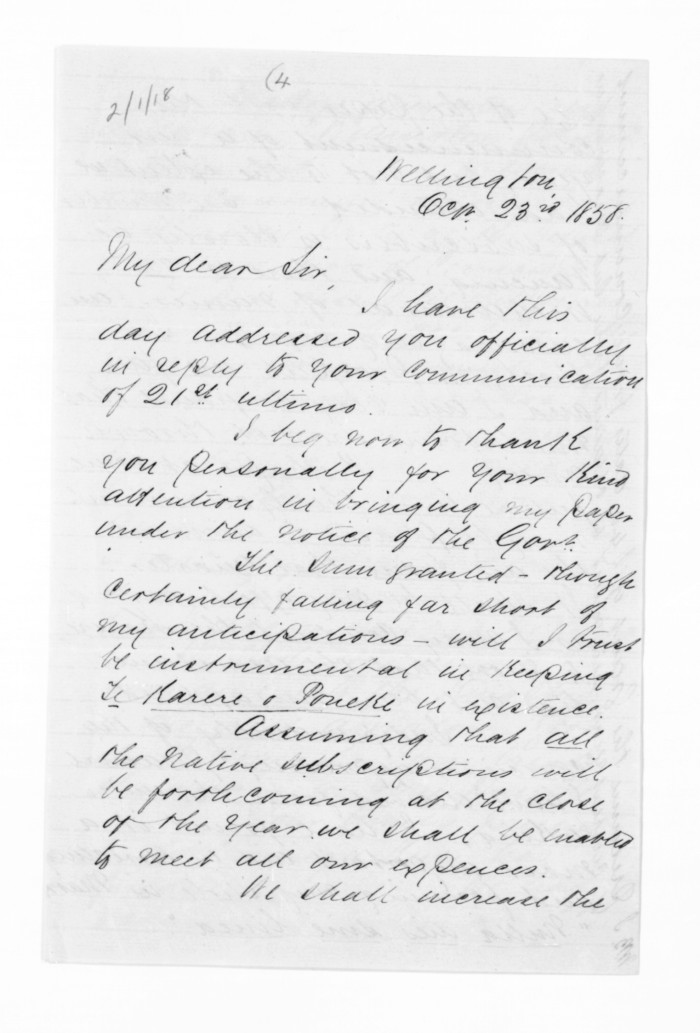 (4
2/1/18
Wellington,
Octr. 23rd 1858.
My dear Sir,
I have this
day addressed you officially
in reply to your communication
of 21st ultimo.
I beg now to thank
you personally for your kind
attention in bringing my paper
under the notice of the Govt.
The sum granted – though
certainly falling far short of
my anticipations – will I trust
be instrumental in keeping
Te Karere o Poneke in existence.
Assuming that all
the native subscriptions will
be forthcoming at the close
of the year we shall be enabled
to meet all our expences.
We shall increase the